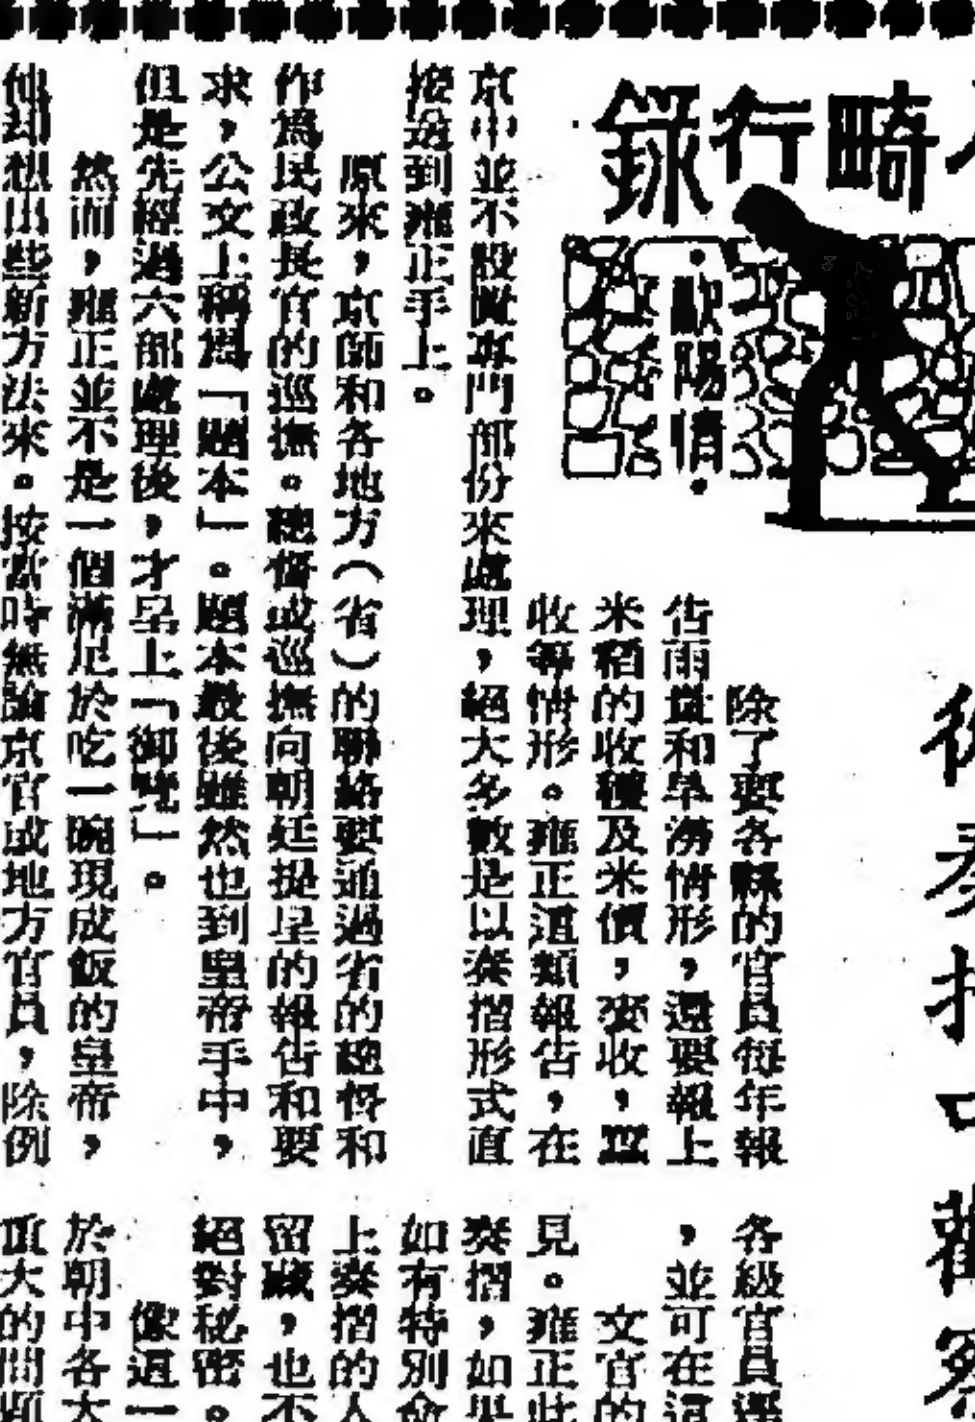 畸行錄
歐陽情
從奏摺中觀察
除了要各縣的官員每年報
告雨量和旱澇情形，還要報上
米稻的收穫及米價，麥收，豆
收等情形。雍正這類報告，在
京中並不設置專門部份來處理，絕大多數是以奏摺形式直
接送到雍正手上。
原來，京師和各地方（省）的聯絡要通過省的總督和
作為民政長官的巡撫。總督或巡撫向朝廷提呈的報告和要
求，公文上稱為「題本」。題本最後雖然也到皇帝手中，
但是先經過六部處理後，才呈上「御覽」。
然而，雍正並不是一個滿足於吃一碗現成飯的皇帝，
他却想出些新方法來。按當時無論京官或地方官員，除例
各級官員
，並可在這
文官的
見。雍正此
奏摺，如果
如有特別命
上奏摺的人
留藏，也不
絕對秘密。
像這一
於朝中各大
頂大的問題